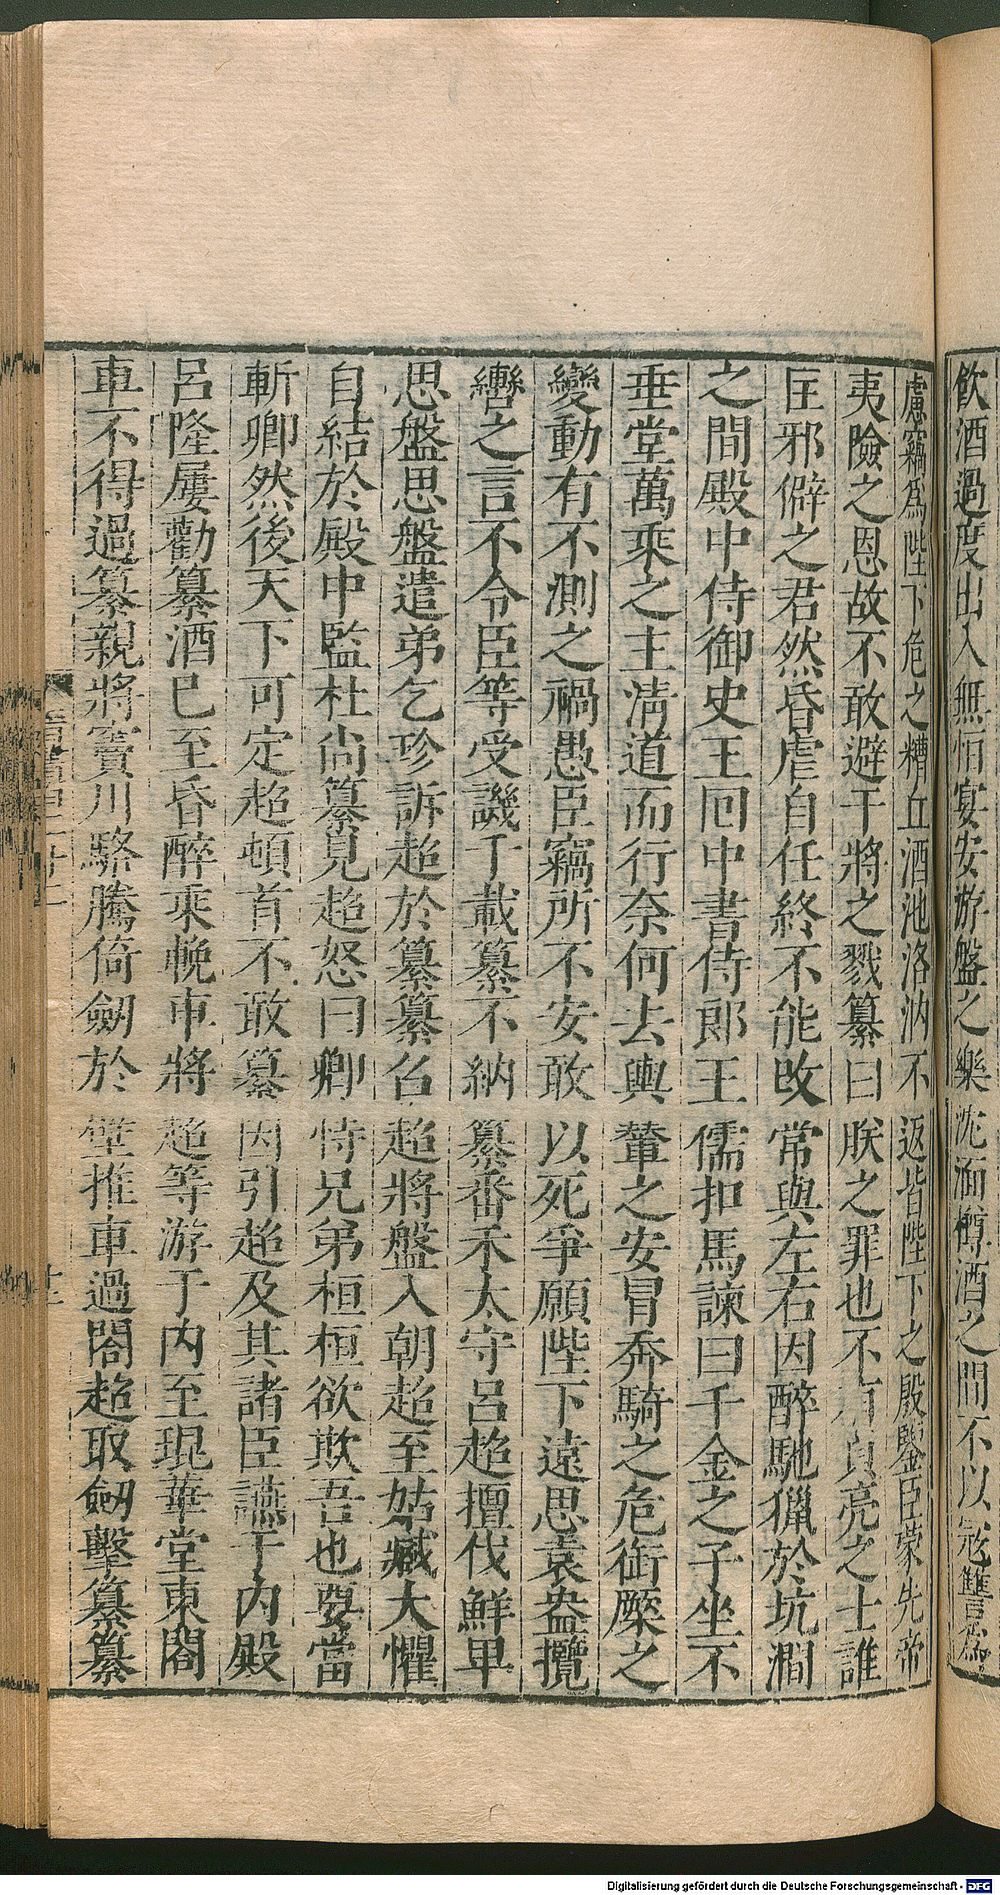 飲酒過度出入無恒宴安游盤之樂沈湎樽酒之間不以寇讐爲
慮竊爲陛下危之糟丘酒池洛汭不返皆陛下之殷鑒臣蒙先帝
夷險之恩故不敢避干將之戮纂曰朕之罪也不有貞亮之士誰
匡邪僻之君然昏虐自任終不能改常與左右因醉馳獵於坑澗
之間殿中侍御史王回中書侍郎王儒扣馬諫曰千金之子坐不
垂堂萬乘之主清道而行奈何去輿輦之安冒奔騎之危銜橜之
變動有不測之禍愚臣竊所不安敢以死爭願陛下遠思袁盎攬
轡之言不令臣等受譏千載纂不納纂番禾太守呂超擅伐鮮卑
思盤思盤遣弟乞珍訴超於纂纂召超將盤入朝超至姑臧大懼
自結於殿中監杜尚纂見超怒曰卿恃兄弟桓桓欲欺吾也要當
斬卿然後天下可定超頓首不敢纂因引超及其諸臣讌于內殿
呂隆屢勸纂酒已至昏醉乘輓車將超等游于內至琨華堂東閤
車不得過纂親將竇川駱騰倚劒於壁推車過閤超取劒擊纂纂
晉書
十二
Digitalisierung gefördert durch die Deutsche Forschungsgemeinschaft - DFG